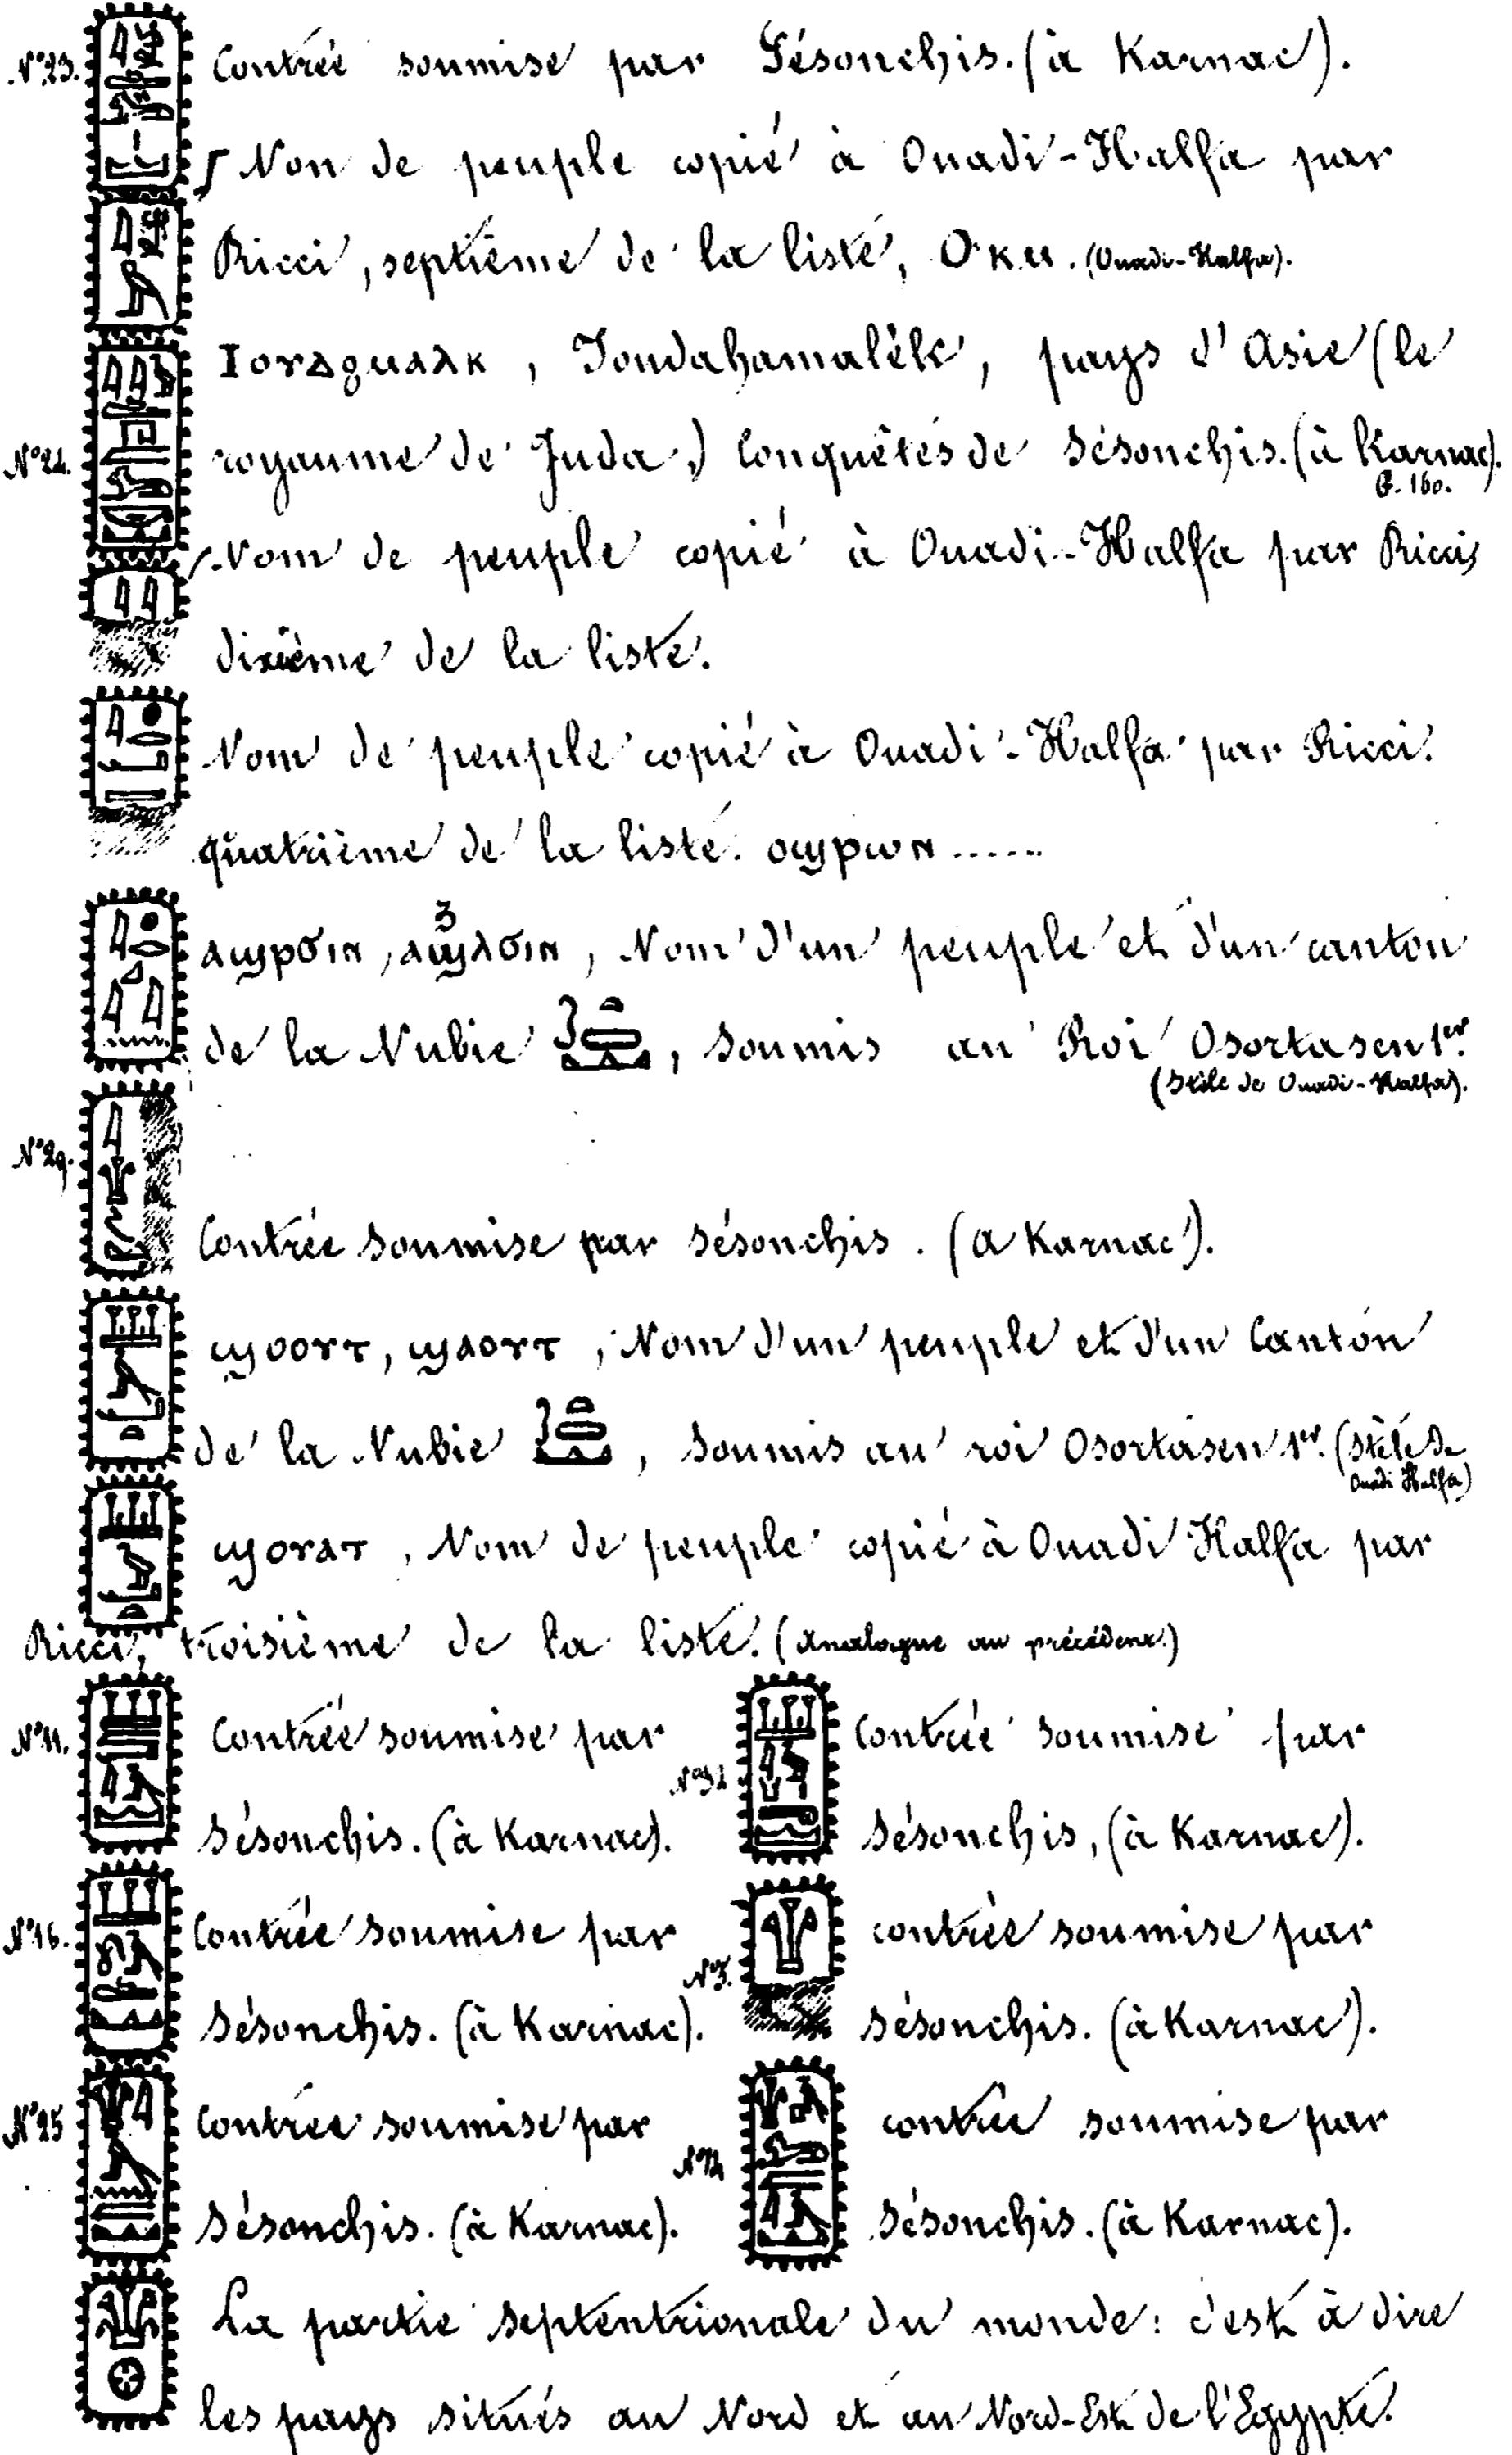 N°23. Contrée soumise par Sésonchis. (à Karnac).
Nom de peuple copié à Ouadi-Halfa par
Ricci, septième de la liste, Oкu. (Ouadi-Halfa).
Ⲓⲟⲩⲇϩⲙⲁⲗⲕ, Joudahamalêk, pays d'Asie (le
royaume de Juda,) Conquêtes de Sésonchis. (à Karnac).
G. 160.
Nom de peuple copié à Ouadi-Halfa par Ricci,
dixième de la liste.
Nom de peuple copié à Ouadi-Halfa par Ricci.
quatrième de la liste. ⲟϣⲣⲱⲛ......
ⲁϣⲣϭⲓⲛ, ⲁϣⲗϭⲓⲛ, Nom d'un peuple et d'un canton
de la Nubie, soumis au Roi Osortasen 1er.
(Stèle de Ouadi-Halfa).
N°29.
Contrée soumise par Sésonchis. (à Karnac).
ϣⲟⲟⲩⲧ, ϣⲁⲟⲩⲧ, Nom d'un peuple et d'un Canton
de la Nubie, soumis au roi Osortasen 1er. (Stèle de
Ouadi Halfa)
ϣⲟⲩⲁⲧ, Nom de peuple copié à Ouadi Halfa par
Ricci, troisième de la liste. (Analogue au précédent.)
N°11. Contrée soumise par
Sésonchis. (à Karnac).
Contrée soumise par
Sésonchis, (à Karnac).
N°16. Contrée soumise par
Sésonchis. (à Karnac).
contrée soumise par
Sésonchis. (à Karnac).
N°25 Contrée soumise par
Sésonchis. (à Karnac).
contrée soumise par
Sésonchis. (à Karnac).
La partie septentrionale du monde: c'est à dire
les pays situés au Nord et au Nord-Est de l'Egypte.